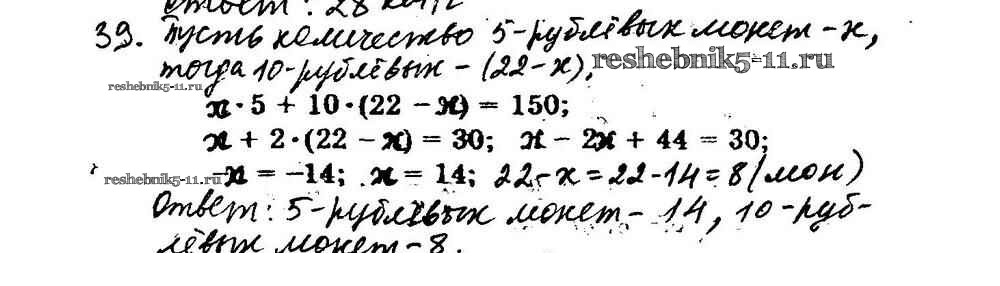 Ответ: 28
39. Пусть количество 5-рублёвых монет - x,
тогда 10-рублёвых - (22 - x),
reshebnik5-11.ru
reshebnik5-11.ru
x·5 + 10·(22 - x) = 150;
x + 2·(22 - x) = 30; x - 2x + 44 = 30;
reshebnik5-11.ru
-x = -14; x = 14; 22 - x = 22 - 14 = 8 (мон)
Ответ: 5-рублёвых монет - 14, 10-руб-
лёвых монет - 8.